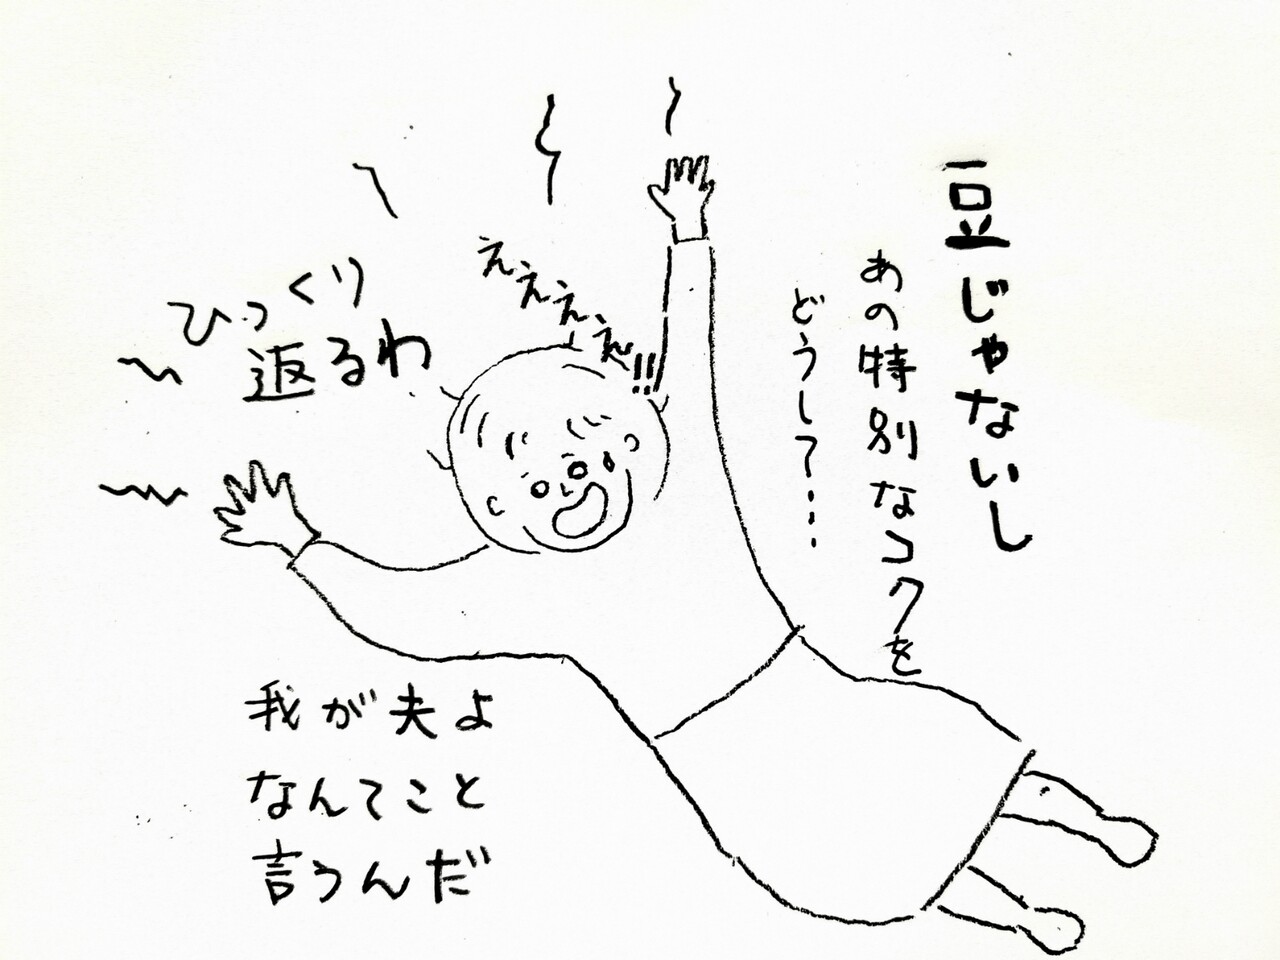 豆じゃないし
あの特別なコクを
どうして…
ええええ!!
ひっくり
返るわ
我が夫よ
なんてこと
言うんだ